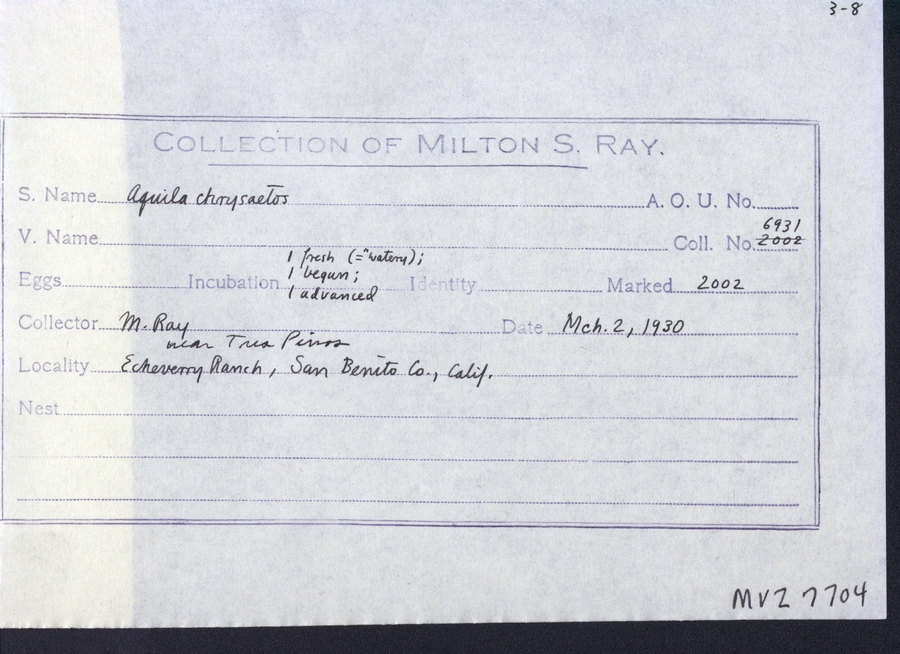 3-8
COLLECTION OF MILTON S. RAY.
S. Name Aquila chrysaetos A. O. U. No.
6931
V. Name Coll. No. 2002
1 fresh (="watery);
1 begun;
Eggs Incubation Identity Marked 2002
1 advanced
Collector M. Ray Date Mch. 2, 1930
near Tres Pinos
Locality Echeverry Ranch, San Benito Co., Calif.
Nest
MVZ 7704